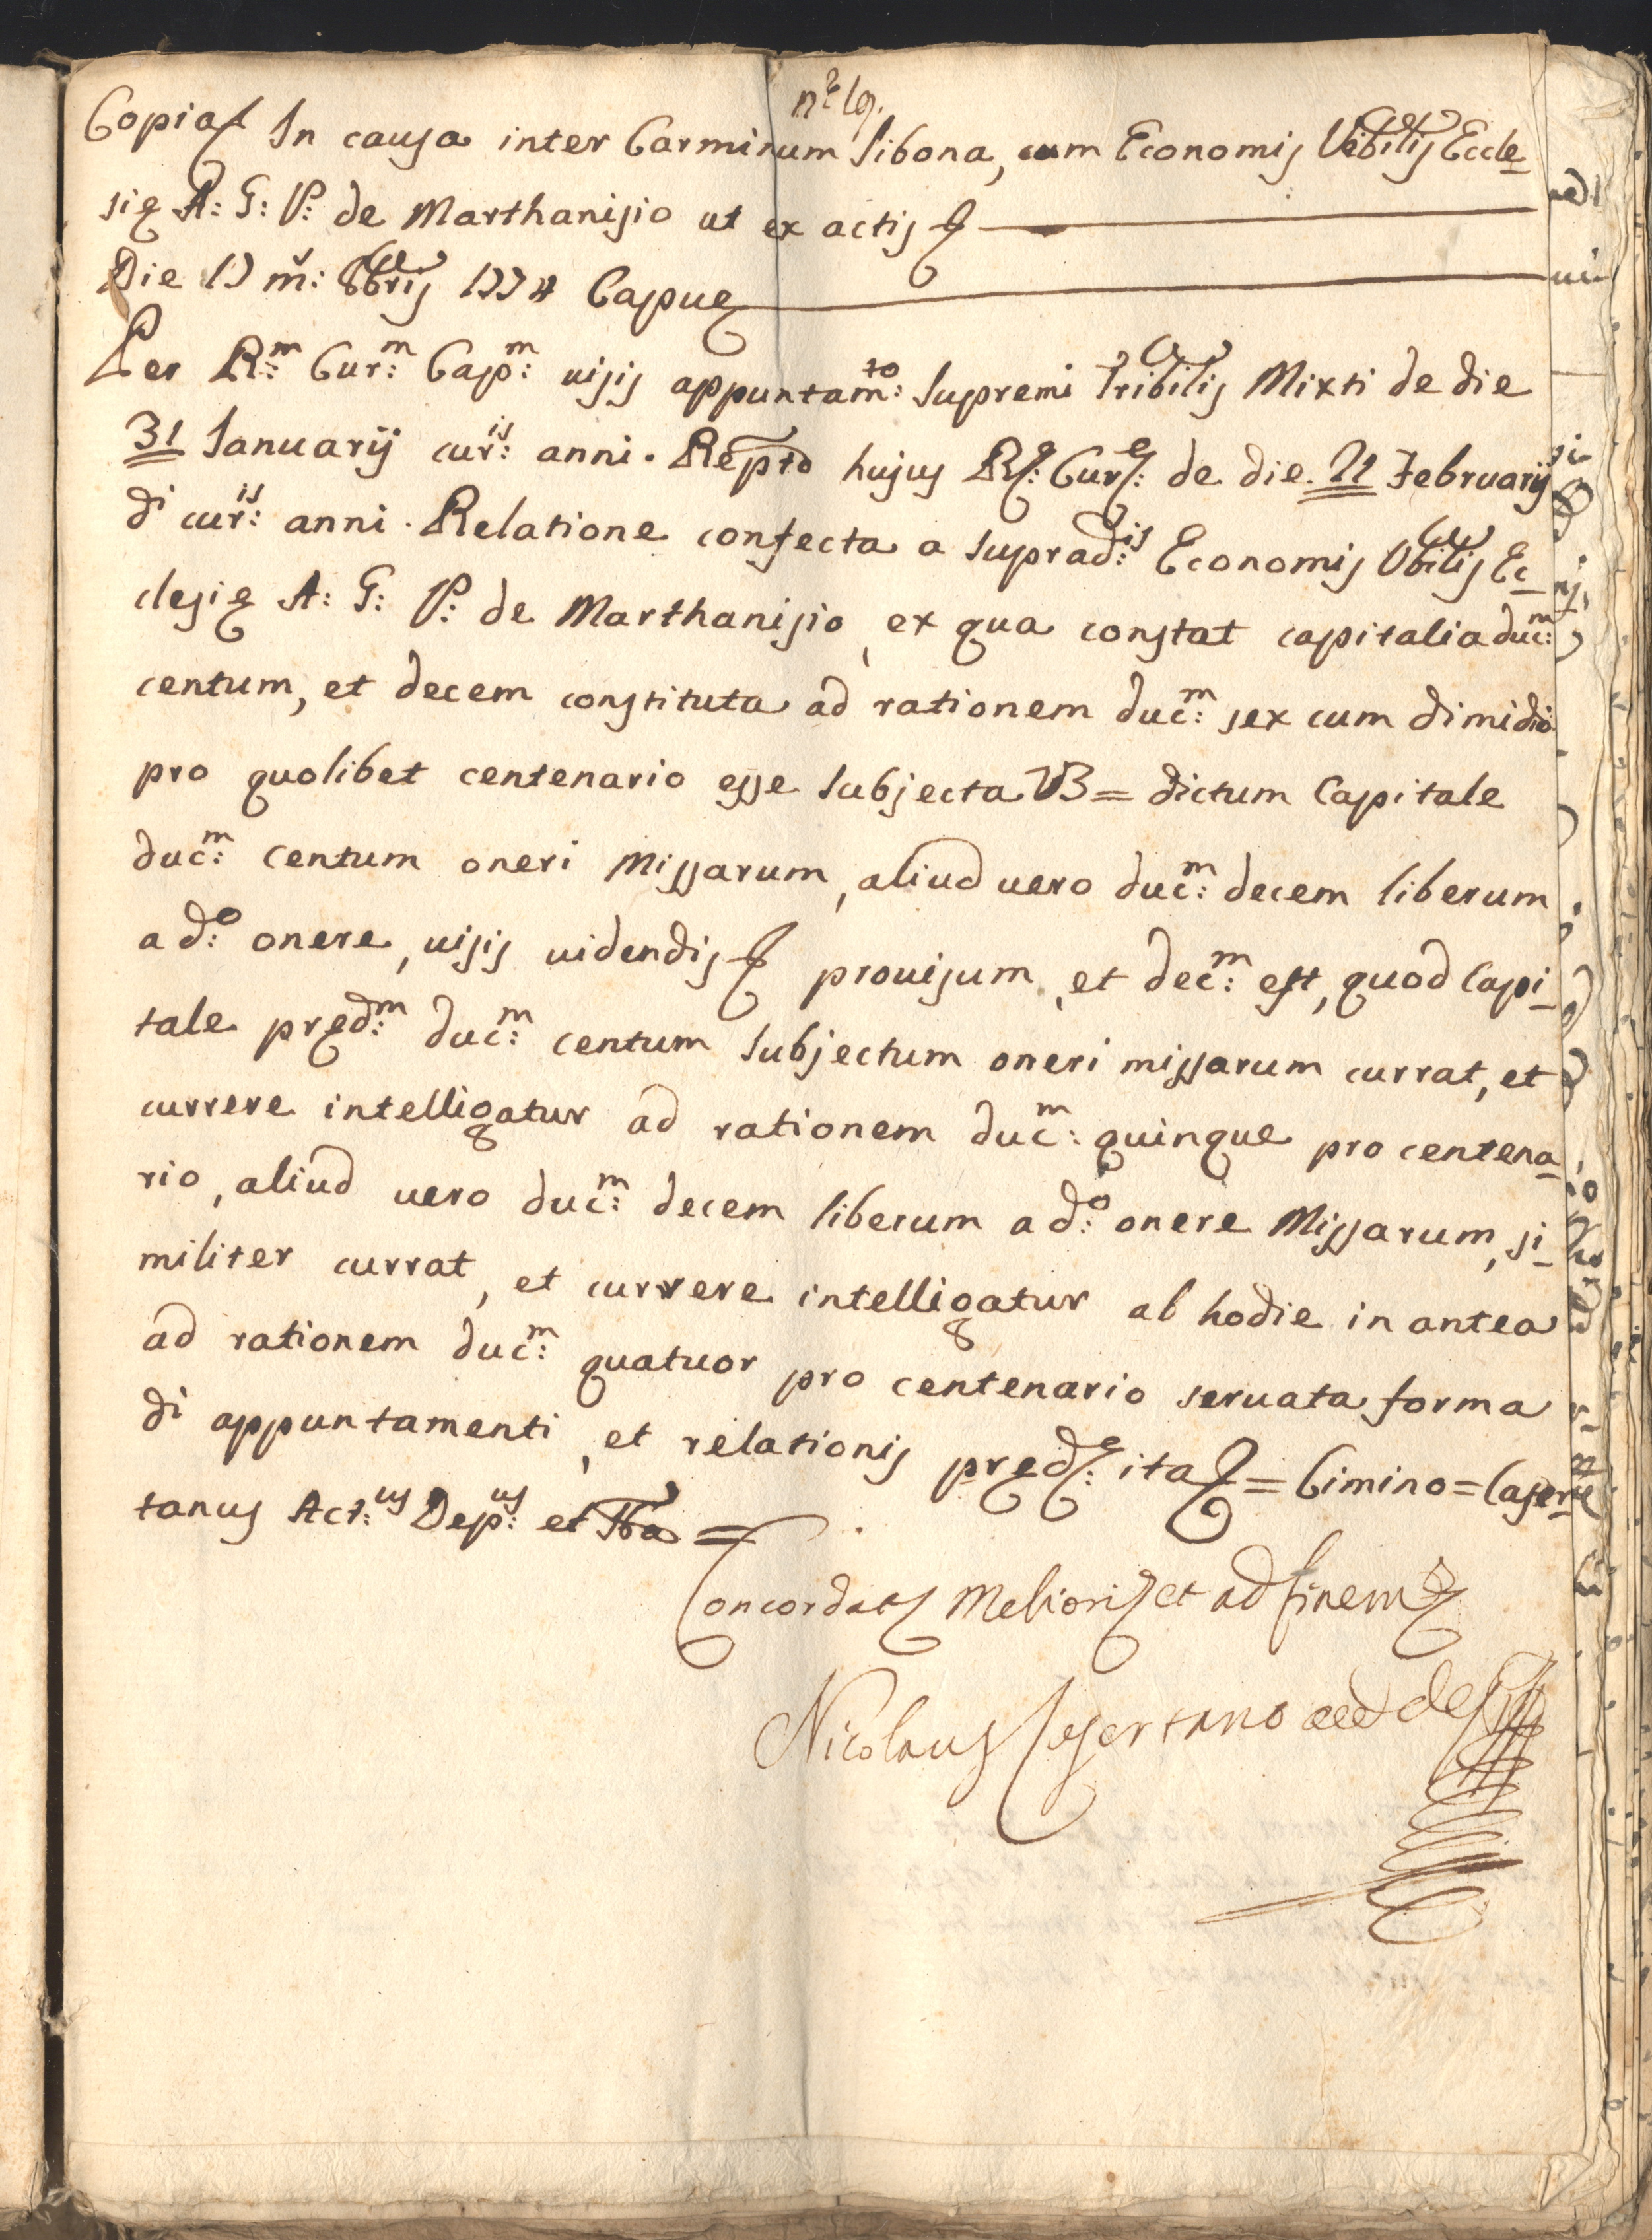 nº 19.
Copia In causa inter Carminum Sibona, cum Economis Vebilis Eccle-
sie A: G: P: de Marthanisio ut ex actis
Die 17 m: 8bris 1774 Capue
Per Rm: Curm: Capm: uisis appuntamto: Supremi Tribilis Mixti de die
31 Ianuarij curis: anni. Repto hujus Re: Cure: de die 21 Februarij
di curis: anni. Relatione confecta a supradis: Economis Vbilis Ec-
clesie A: G: P: de Marthanisio, ex qua constat capitalia ducm:
centum, et decem constituta ad rationem ducm: sex cum dimidio
pro quolibet centenario esse subjecta VB= dictum Capitale
ducm: centum oneri Missarum, aliud uero ducm: decem liberum
a do: onere, uisis uidendis prouisum, et decm: est, quod Capi-
tale predm: ducm: centum subjectum oneri missarum currat, et
currere intelligatur ad rationem ducm: quinque pro centena-
rio, aliud uero ducm: decem liberum a do: onere Missarum, si-
militer currat, et currere intelligatur ab hodie in antea
ad rationem ducm: quatuor pro centenario seruata forma
di appuntamenti, et relationis prede: ita = Cimino = Caser-
tanus Actus: Depus: et =
Concordat Meliori et ad finem
Nicolaus Casertano